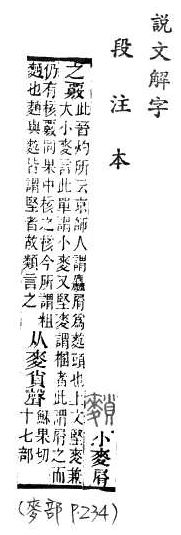 說文解字
段注本
小麥屑
之覈此晉灼所云京師人謂麤屑爲麧頭也上文堅麥兼
大小麥言此單謂小麥又堅麥謂梱者此謂屑之而
仍有核覈同果中核之核今所謂粗
麪也麪與麧皆謂堅者故類言之
从麥𧴪聲穌果切
十七部
(麥部 P234)